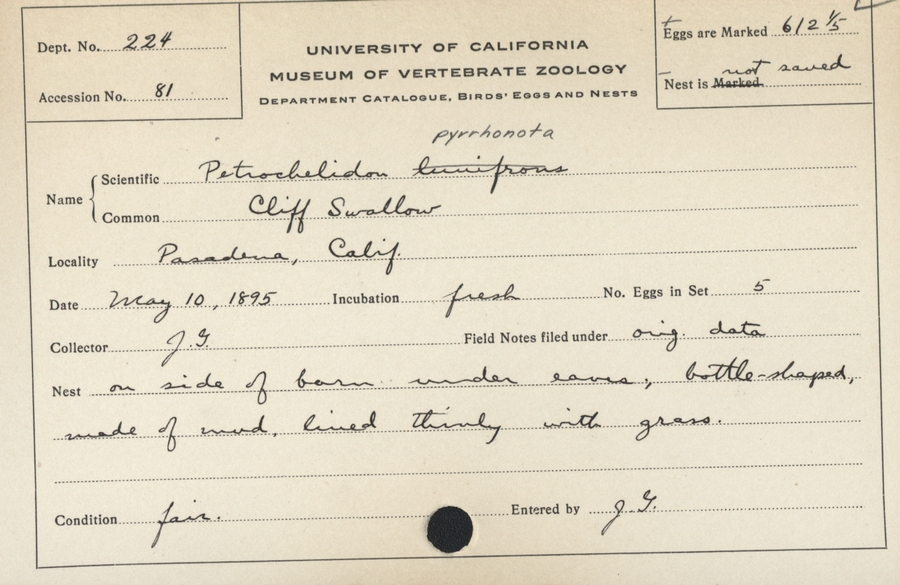 Dept. No. 224
Accession No. 81
UNIVERSITY OF CALIFORNIA
MUSEUM OF VERTEBRATE ZOOLOGY
DEPARTMENT CATALOGUE, BIRDS' EGGS AND NESTS
Eggs are Marked 612 1/5
not saved
Nest is Marked
pyrrhonota
Name
Scientific Petrochelidon lunifrons
Common Cliff Swallow
Locality Pasadena, Calif.
Date May 10, 1895 Incubation fresh No. Eggs in Set 5
Collector J.G. Field Notes filed under orig. data
Nest on side of barn under eaves; bottle-shaped,
made of mud, lined thinly with grass.
Condition fair. Entered by J.G.